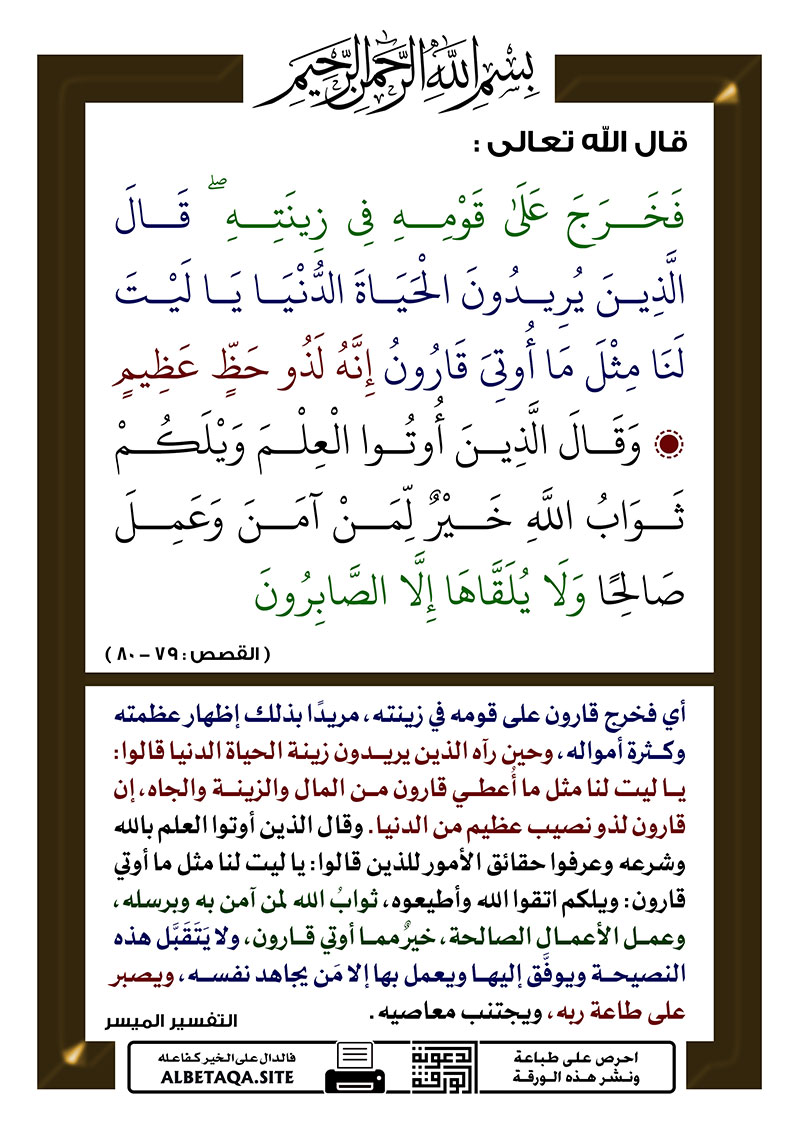 بِسْمِ اللَّهِ الرَّحْمَٰنِ الرَّحِيمِ
قال الله تعالى :
فَخَرَجَ عَلَىٰ قَوْمِهِ فِي زِينَتِهِ ۖ قَالَ
الَّذِينَ يُرِيدُونَ الْحَيَاةَ الدُّنْيَا يَا لَيْتَ
لَنَا مِثْلَ مَا أُوتِيَ قَارُونُ إِنَّهُ لَذُو حَظٍّ عَظِيمٍ
وَقَالَ الَّذِينَ أُوتُوا الْعِلْمَ وَيْلَكُمْ
ثَوَابُ اللَّهِ خَيْرٌ لِّمَنْ آمَنَ وَعَمِلَ
صَالِحًا وَلَا يُلَقَّاهَا إِلَّا الصَّابِرُونَ
( القصص : ٧٩ – ٨٠ )
أي فخرج قارون على قومه في زينته ، مريدًا بذلك إظهار عظمته
وكثرة أمواله ، وحين رآه الذين يريدون زينة الحياة الدنيا قالوا :
يا ليت لنا مثل ما أُعطي قارون من المال والزينة والجاه ، إن
قارون لذو نصيب عظيم من الدنيا . وقال الذين أوتوا العلم بالله
وشرعه وعرفوا حقائق الأمور للذين قالوا : يا ليت لنا مثل ما أوتي
قارون : ويلكم اتقوا الله وأطيعوه ، ثوابُ الله لمن آمن به وبرسله ،
وعمل الأعمال الصالحة ، خيرٌ مما أوتي قارون ، ولا يَتَقَبَّل هذه
النصيحة ويوفَّق إليها ويعمل بها إلا مَن يجاهد نفسه ، ويصبر
على طاعة ربه ، ويجتنب معاصيه .
التفسير الميسر
احرص على طباعة
ونشر هذه الورقة
الورقة الدعوية
فالدال على الخير كفاعله
ALBETAQA.SITE